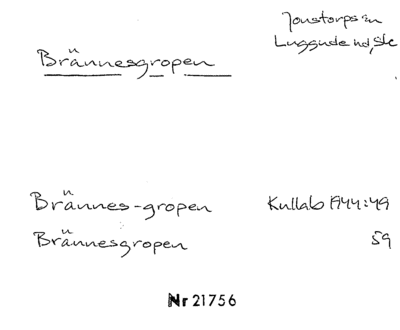 Jonstorps sn
Luggude hd, Sk
Brännesgropen
Brännes-gropen Kullab 1944:49
Brännesgropen 59
Nr 21756